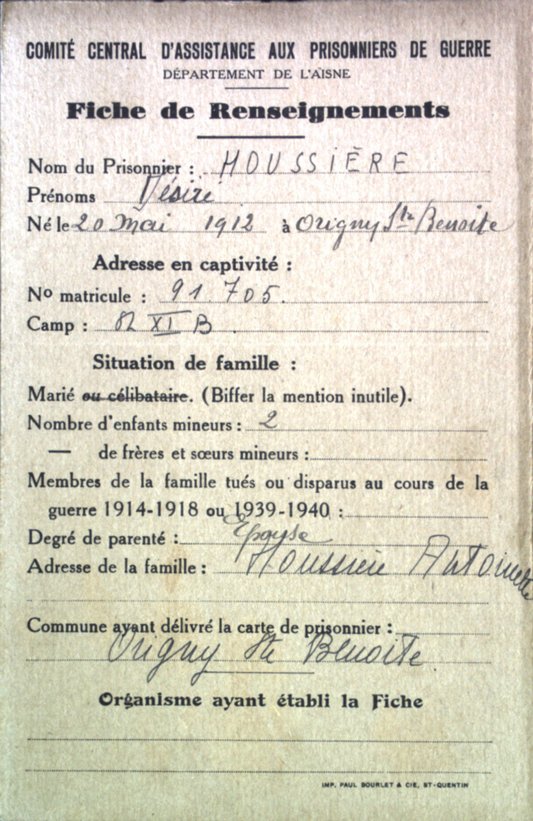 COMITÉ CENTRAL D'ASSISTANCE AUX PRISONNIERS DE GUERRE
DÉPARTEMENT DE L'AISNE
Fiche de Renseignements
Nom du Prisonnier : HOUSSIÈRE
Prénoms Désiré
Né le 20 Mai 1912 à Origny Ste Benoite
Adresse en captivité :
No matricule : 91 705.
Camp : XI B
Situation de famille :
Marié ou célibataire. (Biffer la mention inutile).
Nombre d'enfants mineurs : 2
— de frères et sœurs mineurs :
Membres de la famille tués ou disparus au cours de la
guerre 1914-1918 ou 1939-1940 :
Degré de parenté : Epouse
Adresse de la famille : Houssière Antoinette
Commune ayant délivré la carte de prisonnier :
Origny Ste Benoite
Organisme ayant établi la Fiche
IMP. PAUL BOURLET & CIE, ST-QUENTIN